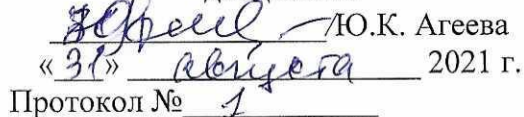 /Ю.К. Агеева
«31» августа 2021 г.
Протокол № 1